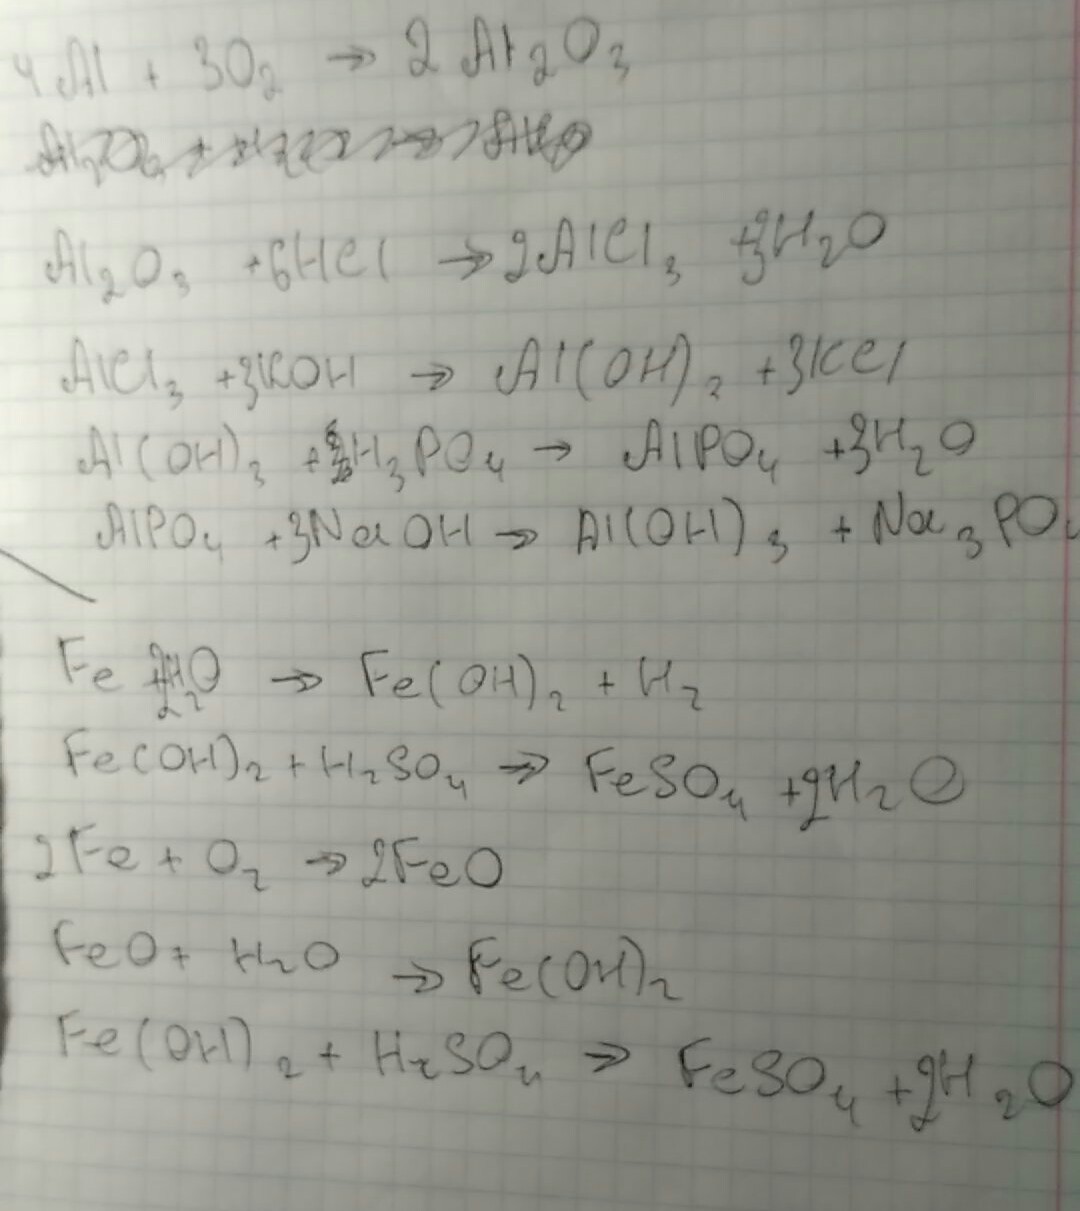 4Al + 3O₂ → 2Al₂O₃
Al₂O₃ +6HCl → 2AlCl₃ +3H₂O
AlCl₃ +3KOH → Al(OH)₃ +3KCl
Al(OH)₃ + H₃PO₄ → AlPO₄ +3H₂O
AlPO₄ +3NaOH → Al(OH)₃ + Na₃PO₄
Fe +2H₂O → Fe(OH)₂ + H₂
Fe(OH)₂ + H₂SO₄ → FeSO₄ +2H₂O
2Fe + O₂ → 2FeO
FeO + H₂O → Fe(OH)₂
Fe(OH)₂ + H₂SO₄ → FeSO₄ +2H₂O